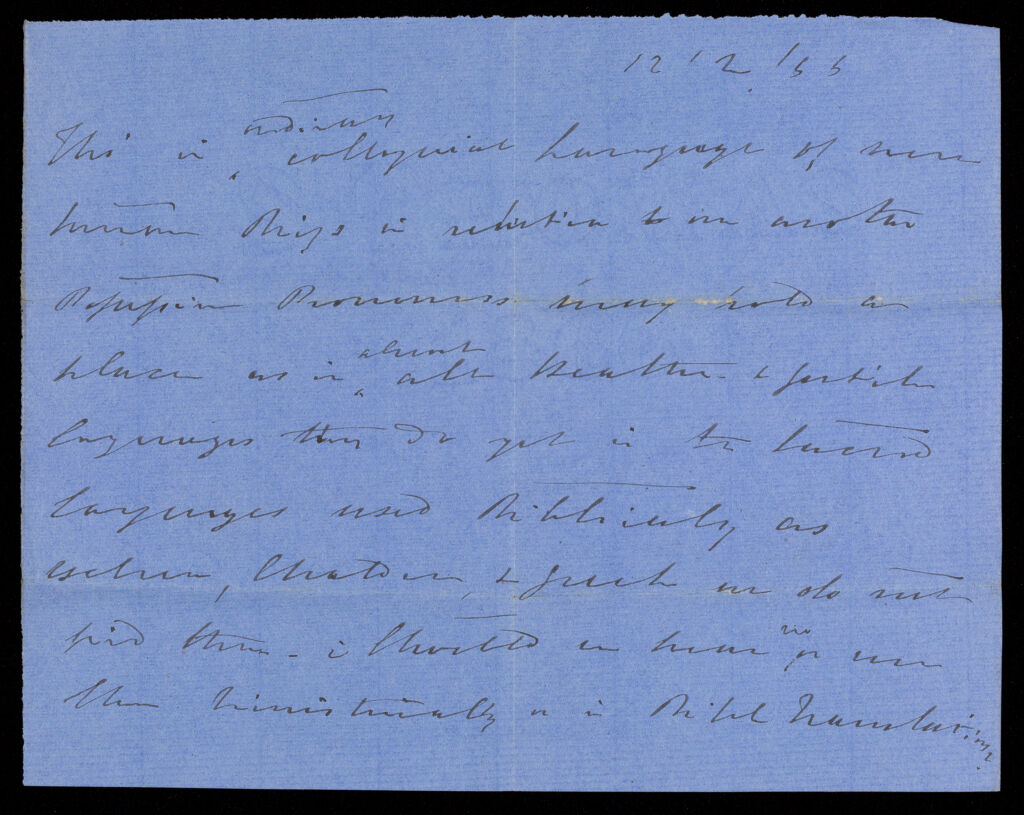 12/2/66
This in ordinary colloquial Language of mere
human Beings in relation to one another
Pronouns may hold a
place as in almost all Heathen & Gentile
languages they do yet in the sacred
languages used Biblically as
Chaldee, & Greek we do not
find them - Should we hear or use
them Ministerially or in Bible Translations?